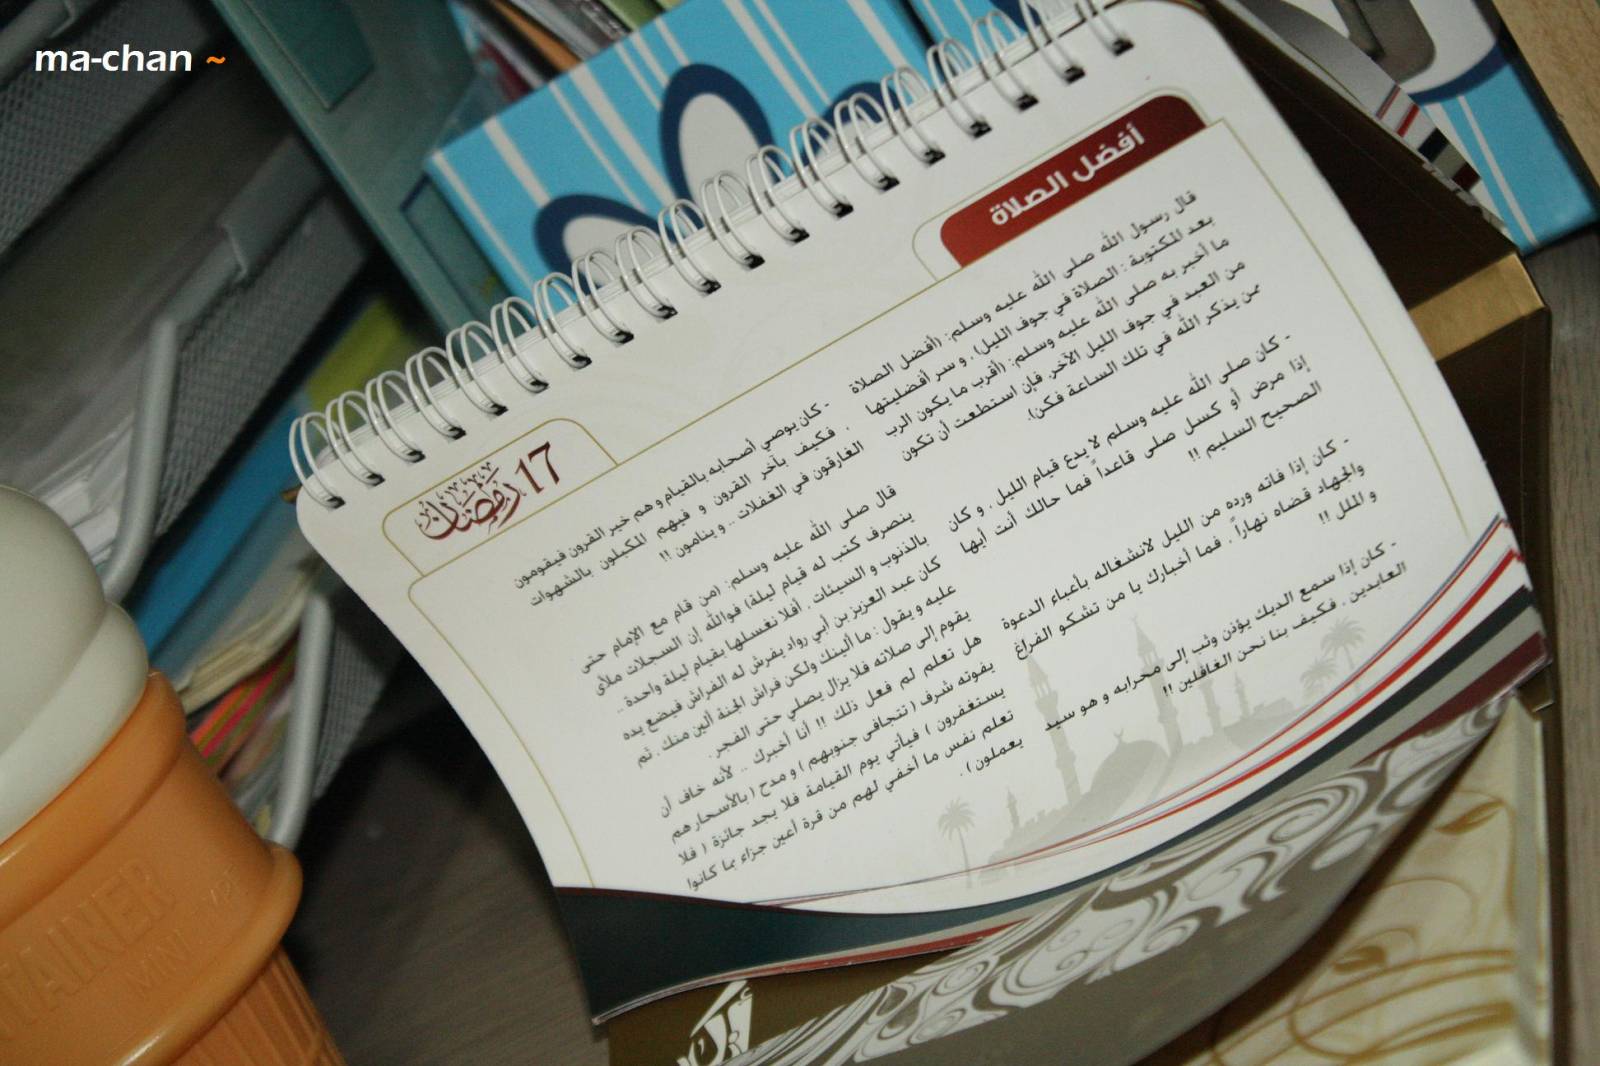 ma-chan ~
أفضل الصلاة
قال رسول الله صلى الله عليه وسلم: (أفضل الصلاة
بعد المكتوبة : الصلاة في جوف الليل) . و سر أفضليتها
ما أخبر به صلى الله عليه وسلم: (أقرب ما يكون الرب
من العبد في جوف الليل الآخر، فإن استطعت أن تكون
ممن يذكر الله في تلك الساعة فكن).
- كان صلى الله عليه وسلم لا يدع قيام الليل . و كان
إذا مرض أو كسل صلى قاعداً فما حالك أنت أيها
الصحيح السليم !!
- كان إذا فاته ورده من الليل لانشغاله بأعباء الدعوة
والجهاد قضاه نهاراً . فما أخبارك يا من تشكو الفراغ
و الملل !!
- كان إذا سمع الديك يؤذن وثب إلى محرابه و هو سيد
العابدين . فكيف بنا نحن الغافلين !!
17 رمضان
- كان يوصي أصحابه بالقيام و هم خير القرون فيقومون
. فكيف بآخر القرون و فيهم المكبلون بالشهوات
الغارقون في الغفلات .. و ينامون !!
قال صلى الله عليه وسلم: (من قام مع الإمام حتى
ينصرف كتب له قيام ليلة) فوالله إن السجلات ملأى
بالذنوب و السيئات . أفلا نغسلها بقيام ليلة واحدة ..
كان عبد العزيز بن أبي رواد يفرش له الفراش فيضع يده
عليه و يقول : ما ألينك ولكن فراش الجنة ألين منك . ثم
يقوم إلى صلاته فلا يزال يصلي حتى الفجر.
هل تعلم لم فعل ذلك !! أنا أخبرك .. لأنه خاف أن
يفوته شرف ( تتجافى جنوبهم ) و مدح ( بالأسحار هم
يستغفرون ) فيأتي يوم القيامة فلا يجد جائزة ( فلا
تعلم نفس ما أخفي لهم من قرة أعين جزاء بما كانوا
يعملون ) .
TAINER
MINI